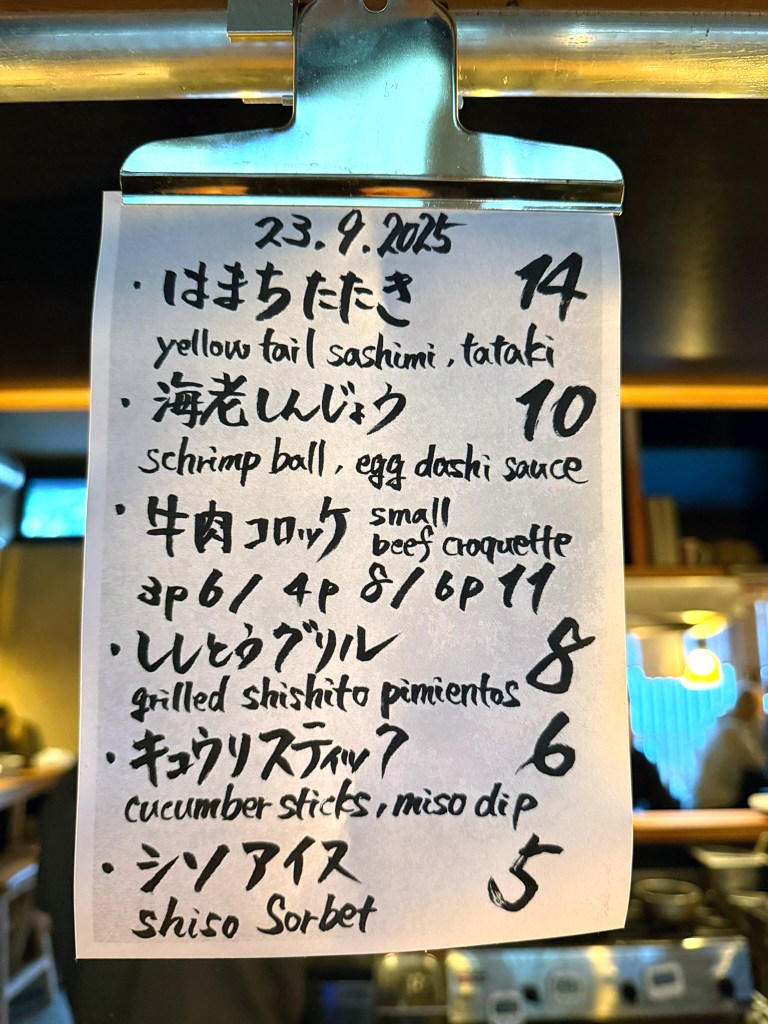 23.9.2025
・はまちたたき 14
yellow tail sashimi, tataki
・海老しんじょう 10
schrimp ball, egg dashi sauce
・牛肉コロッケ small
beef croquette
3p 6/ 4p 8/ 6p 11
・ししとうグリル 8
grilled shishito pimientos
・キュウリスティック 6
cucumber sticks, miso dip
・シソアイス 5
shiso Sorbet